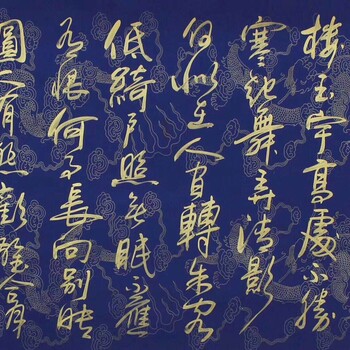 樓玉宇高處不勝
寒起舞弄清影
何似在人間轉朱閣
低綺戶照無眠不應
有恨何事長向別時
圓人有悲歡離合月